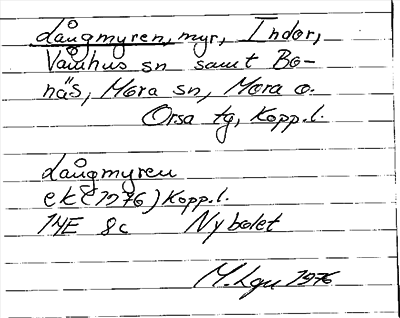 Långmyren, myr, Indor,
Våmhus sn samt Bo-
näs, Mora sn, Mora o.
Orsa tg, Kopp.l.
Långmyren
ek (1976) Kopp.l.
14E 8c Nybolet
M. Lgu 1976